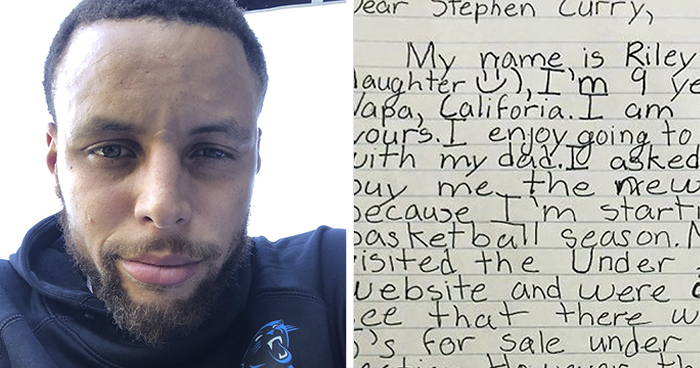 Dear Stephen Curry,
My name is Riley
daughter ), I'm 9 ye
Napa, Califoria. I am
yours. I enjoy going to
with my dad. I asked
buy me the new
because I'm starti
basketball season. 
visited the Under
website and were
see that there w
's for sale under